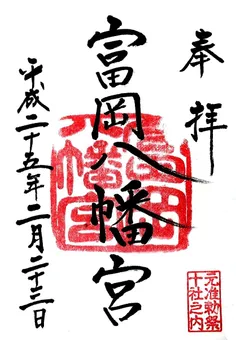 奉拝
富岡八幡宮
平成二十五年二月二十三日
富岡八幡宮
元准勅祭
十社之内